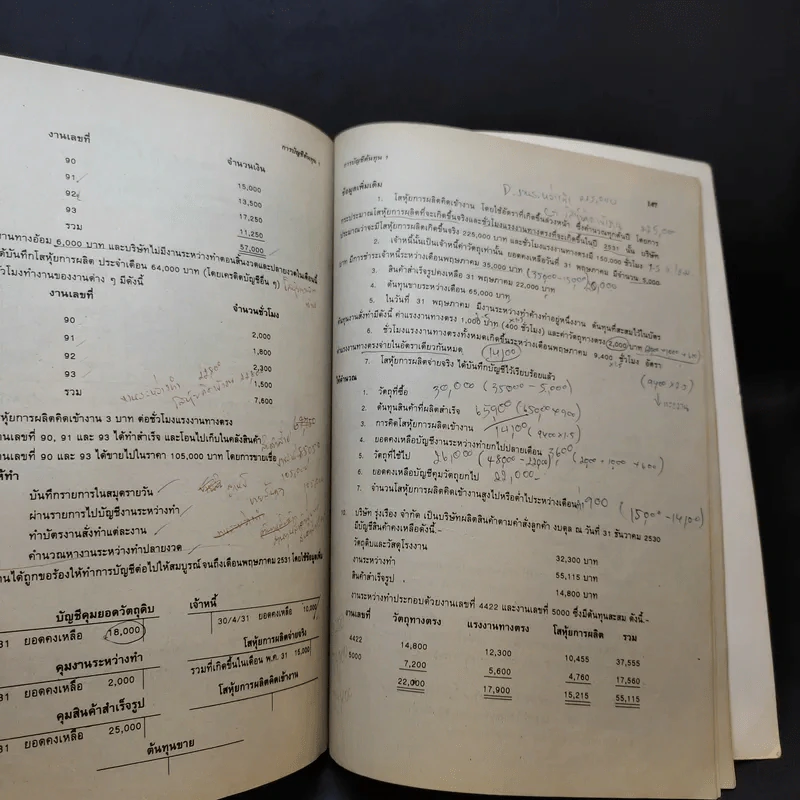 การบัญชีต้นทุน 1
งานเลขที่
จำนวนเงิน
90
15,000
91
13,500
92
17,250
93
11,250
รวม
57,000
งานทางอ้อม 6,000 บาท และบริษัทไม่มีงานระหว่างทำตอนสิ้นงวดและปลายงวดในเดือนนี้
ได้บันทึกโสหุ้ยการผลิต ประจำเดือน 64,000 บาท (โดยเครดิตบัญชีอื่น ๆ)
ชั่วโมงทำงานของงานต่าง ๆ มีดังนี้
งานเลขที่
จำนวนชั่วโมง
90
2,000
91
1,800
92
2,300
93
1,500
รวม
7,600
หุ้ยการผลิตคิดเข้างาน 3 บาท ต่อชั่วโมงแรงงานทางตรง
นเลขที่ 90, 91 และ 93 ได้ทำสำเร็จ และโอนไปเก็บในคลังสินค้า
นเลขที่ 90 และ 93 ได้ขายไปในราคา 105,000 บาท โดยการขายเชื่อ
ให้ทำ
บันทึกรายการในสมุดรายวัน
ผ่านรายการไปบัญชีงานระหว่างทำ
ทำบัตรงานสั่งทำแต่ละงาน
คำนวณหางานระหว่างทำปลายงวด
านได้ถูกขอร้องให้ทำการบัญชีต่อไปให้สมบูรณ์จนถึงเดือนพฤษภาคม 2531 โดยใช้ข้อมูลเพิ่ม
บัญชีคุมยอดวัตถุดิบ
31 ยอดคงเหลือ 18,000
คุมงานระหว่างทำ
31 ยอดคงเหลือ 2,000
คุมสินค้าสำเร็จรูป
31 ยอดคงเหลือ 25,000
เจ้าหนี้
30/4/31 ยอดคงเหลือ 10,000
โสหุ้ยการผลิตจ่ายจริง
รวมที่เกิดขึ้นในเดือน พ.ค. 31 15,000
โสหุ้ยการผลิตคิดเข้างาน
ต้นทุนขาย
การบัญชีต้นทุน 1
147
ข้อมูลเพิ่มเติม
225,000
1. โสหุ้ยการผลิตคิดเข้างาน โดยใช้อัตราที่เกิดขึ้นล่วงหน้า ซึ่งคำนวณทุกต้นปี โดยการ
ประมาณโสหุ้ยการผลิตที่จะเกิดขึ้นจริงและชั่วโมงแรงงานทางตรงที่จะเกิดขึ้นในปี 2531 นั้น บริษัท
ประมาณว่าจะมีโสหุ้ยการผลิตเกิดขึ้น 225,000 บาท และชั่วโมงแรงงานทางตรงมี 150,000 ชั่วโมง
2. เจ้าหนี้นั้นเป็นเจ้าหนี้ค่าวัตถุเท่านั้น ยอดคงเหลือวันที่ 31 พฤษภาคม มีจำนวน 5,000
บาท มีการชำระเจ้าหนี้ระหว่างเดือนพฤษภาคม 35,000 บาท
3. สินค้าสำเร็จรูปคงเหลือ 31 พฤษภาคม 22,000 บาท
4. ต้นทุนขายระหว่างเดือน 65,000 บาท
5. ในวันที่ 31 พฤษภาคม มีงานระหว่างทำค้างทำอยู่หนึ่งงาน ต้นทุนที่สะสมไว้ในบัตร
ต้นทุนงานสั่งทำมีดังนี้ ค่าแรงงานทางตรง 1,000 บาท (400 ชั่วโมง) และค่าวัตถุทางตรง 2,000 บาท
6. ชั่วโมงแรงงานทางตรงทั้งหมดเกิดขึ้นระหว่างเดือนพฤษภาคม 9,400 ชั่วโมง อัตรา
ค่าแรงงานทางตรงจ่ายในอัตราเดียวกันหมด 14,100
7. โสหุ้ยการผลิตจ่ายจริง ได้บันทึกบัญชีไว้เรียบร้อยแล้ว
ให้คำนวณ
1. วัตถุที่ซื้อ 30,000 (35000 - 5,000)
2. ต้นทุนสินค้าที่ผลิตสำเร็จ
3. การคิดโสหุ้ยการผลิตเข้างาน 14,100 (9400 x 1.5)
4. ยอดคงเหลือบัญชีงานระหว่างทำยกไปปลายเดือน 3600
5. วัตถุใช้ไป 26,000
6. ยอดคงเหลือบัญชีคุมวัตถุยกไป 22,000
7. จำนวนโสหุ้ยการผลิตคิดเข้างานสูงไปหรือต่ำไประหว่างเดือน 900 (15,000 - 14,100)
10. บริษัท รุ่งเรือง จำกัด เป็นบริษัทผลิตสินค้าตามคำสั่งลูกค้า งบดุล ณ วันที่ 31 ธันวาคม 2530
มีบัญชีสินค้าคงเหลือดังนี้.-
วัตถุดิบและวัสดุโรงงาน
32,300 บาท
งานระหว่างทำ
55,115 บาท
สินค้าสำเร็จรูป
14,800 บาท
งานระหว่างทำประกอบด้วยงานเลขที่ 4422 และงานเลขที่ 5000 ซึ่งมีต้นทุนสะสม ดังนี้.-
งานเลขที่ วัตถุทางตรง แรงงานทางตรง โสหุ้ยการผลิต รวม
4422 14,800 12,300 10,455 37,555
5000 7,200 5,600 4,760 17,560
22,000 17,900 15,215 55,115